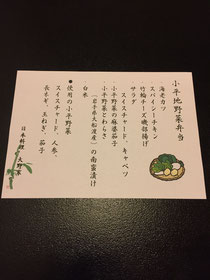 小平地野菜弁当
海老カツ
スパイシーチキン
竹輪チーズ磯部揚げ
サラダ
スイスチャード、キャベツ
小平野菜の麻婆茄子
小平野菜とわらさ
(岩手県大船渡産)の南蛮漬け
白米
●使用の小平野菜
スイスチャード、人参、
長ネギ、玉ねぎ、茄子
日本料理 大野家